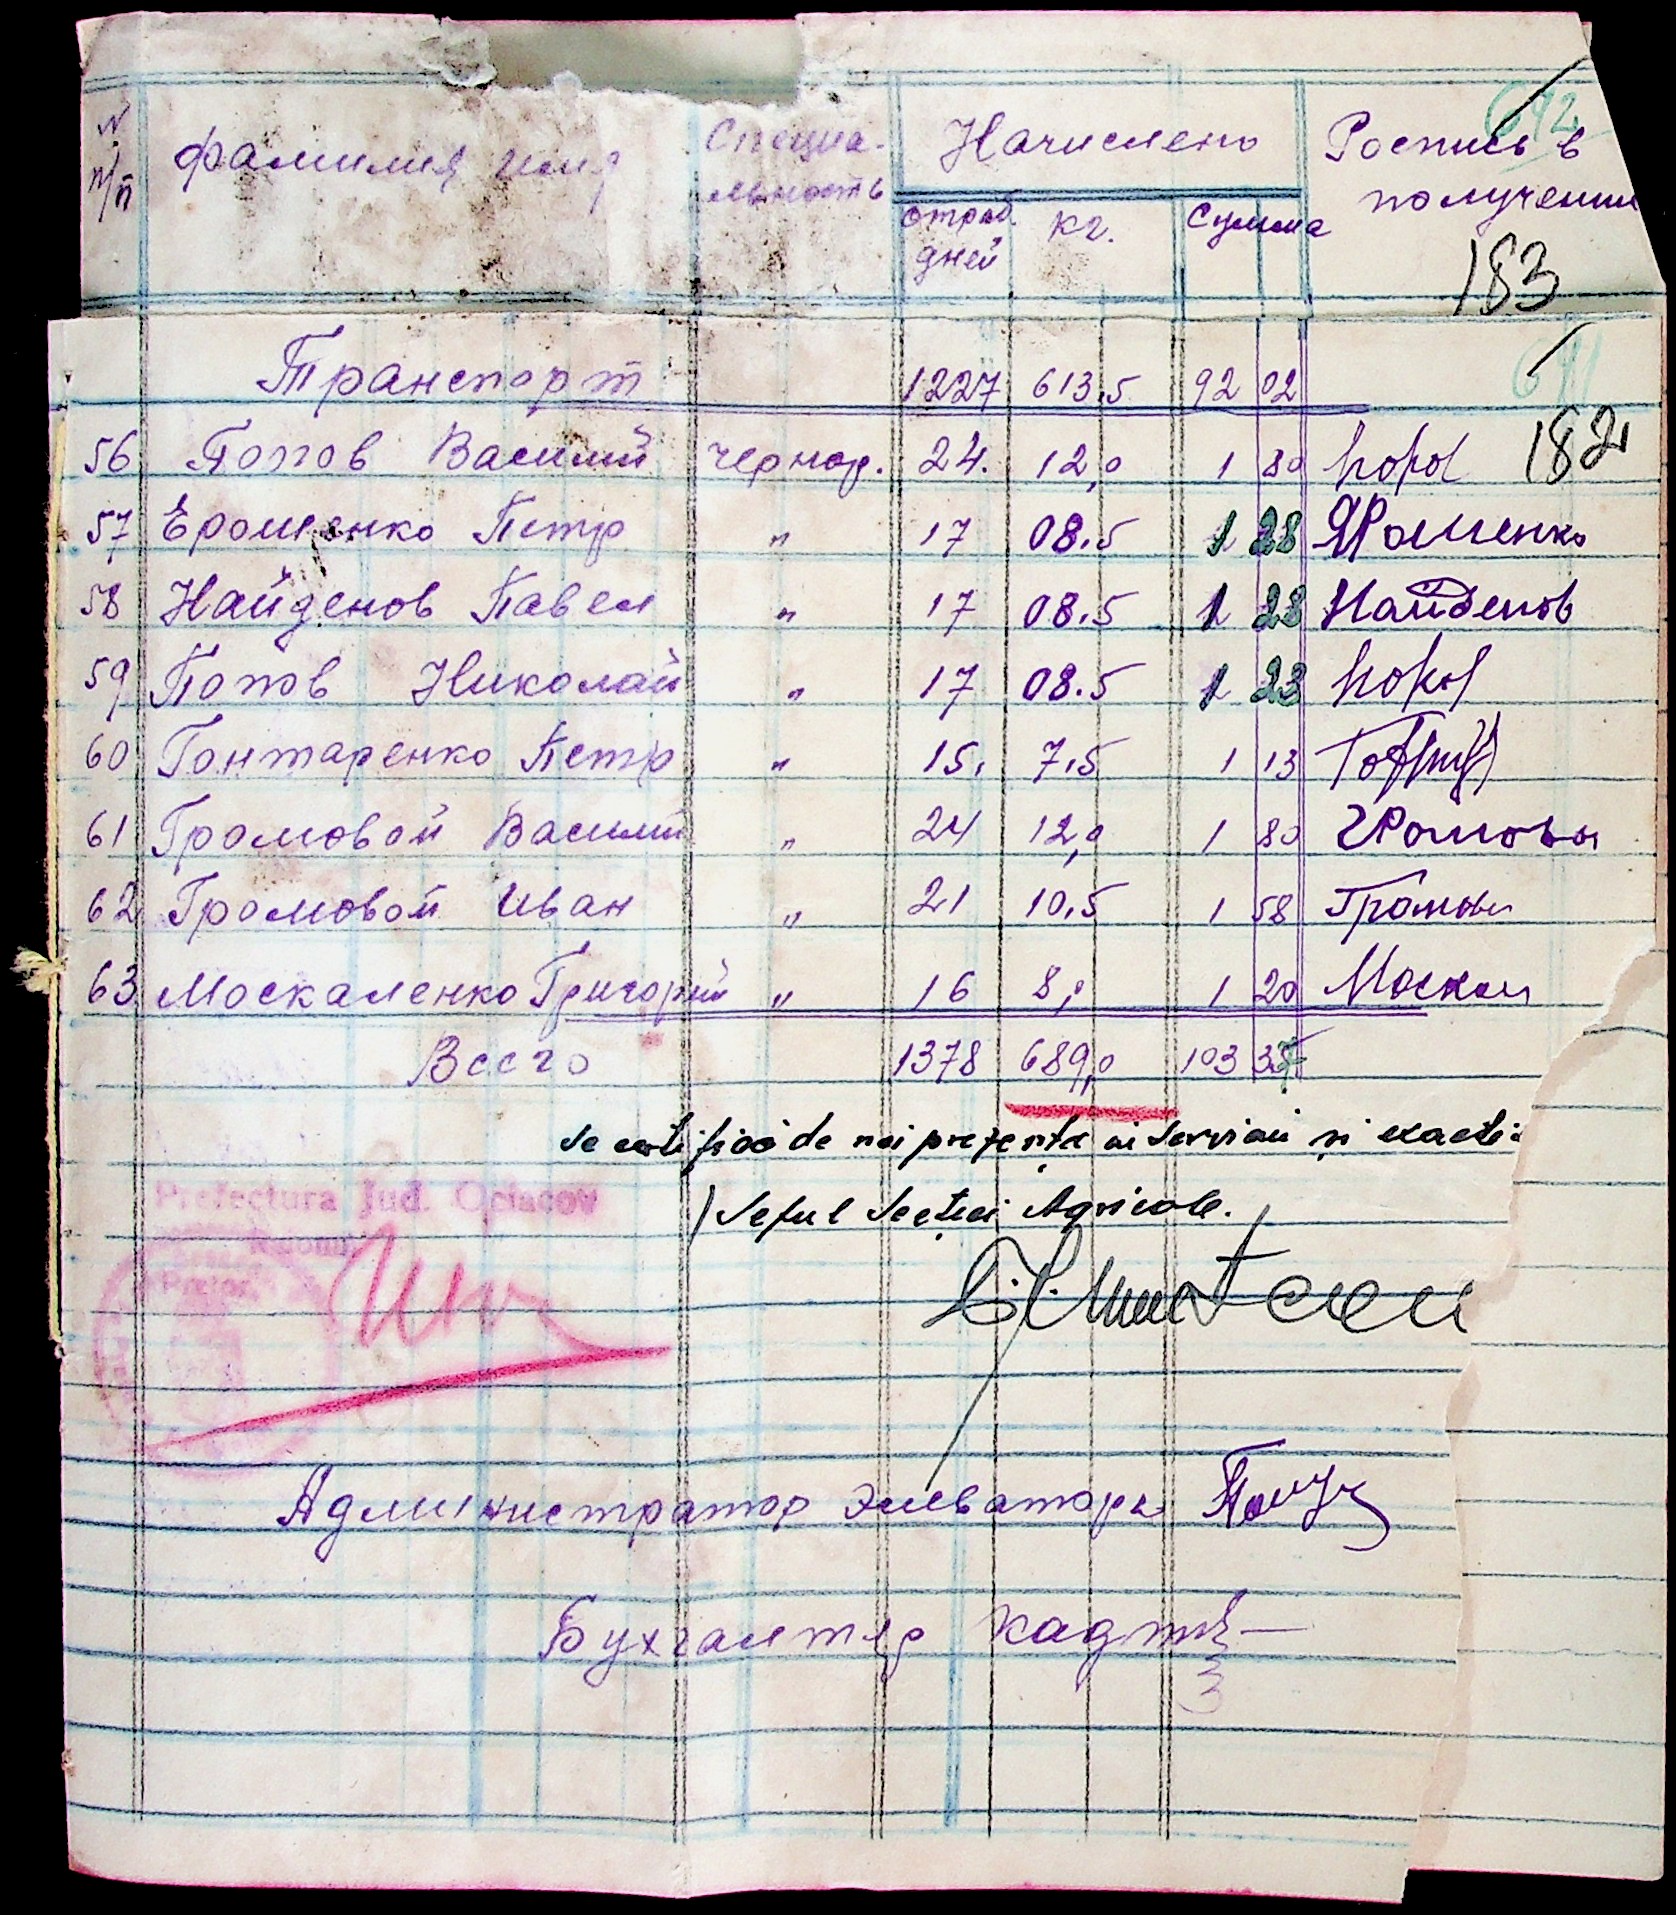 692
N п/п Фамилия имя Специа- Начислено Роспись в
льность получении
отраб. дней кг. Сумма
183
Транспорт 1227 613.5 92 02
182
56 Попов Василий чернор. 24. 12,0 1 80 Попов
57 Ерошенко Петр " 17 08.5 1 28 ЯРошенко
58 Найденов Павел " 17 08.5 1 28 Найденов
59 Попов Николай " 17 08.5 1 23 Попов
60 Гонтаренко Петр " 15. 7.5 1 13
61 Громовой Василий " 24 12,0 1 80 Громовой
62 Громовой Иван " 21 10.5 1 58 Громов
63 Москаленко Григорий " 16 8,0 1 20 Москал
Всего 1378 689,0 103 35
Se certifică de noi prezența la serviciu și exacti
Prefectura Jud. Oceacov
Șeful Secției Agricole.
Pretor
Администратор Элеватора
Бухгалтер